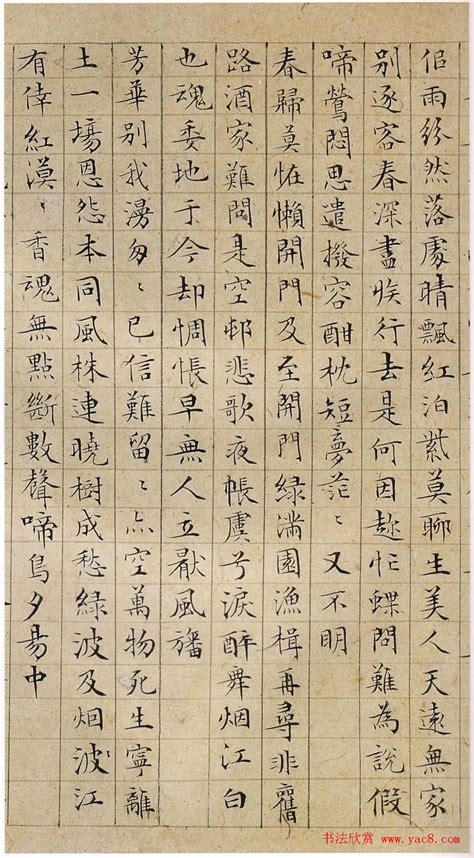 佀雨紛然落處晴飄紅泊紫莫聊生美人天遠無家
別逐客春深盡族行去是何因趂忙蝶問難為說假
啼鶯悶思遣撥容酣枕短夢茫〻又不明
春歸莫恠懶開門及至開門綠滿園漁楫再尋非舊
路酒家難問是空邨悲歌夜帳虞兮淚醉舞烟江白
也魂委地于今却惆悵早無人立厭風旛
芳華別我漫匆〻已信難留〻亦空萬物死生寧離
土一塲恩怨本同風株連曉樹成愁綠波及烟波江
有倖紅漠〻香魂無點斷數聲啼鳥夕昜中
书法欣赏 www.yac8.com